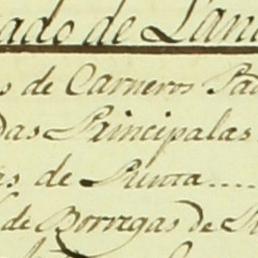 ado de Lan
s de Carneros Pad
das Principalas
as de Punta....
de Borregas de